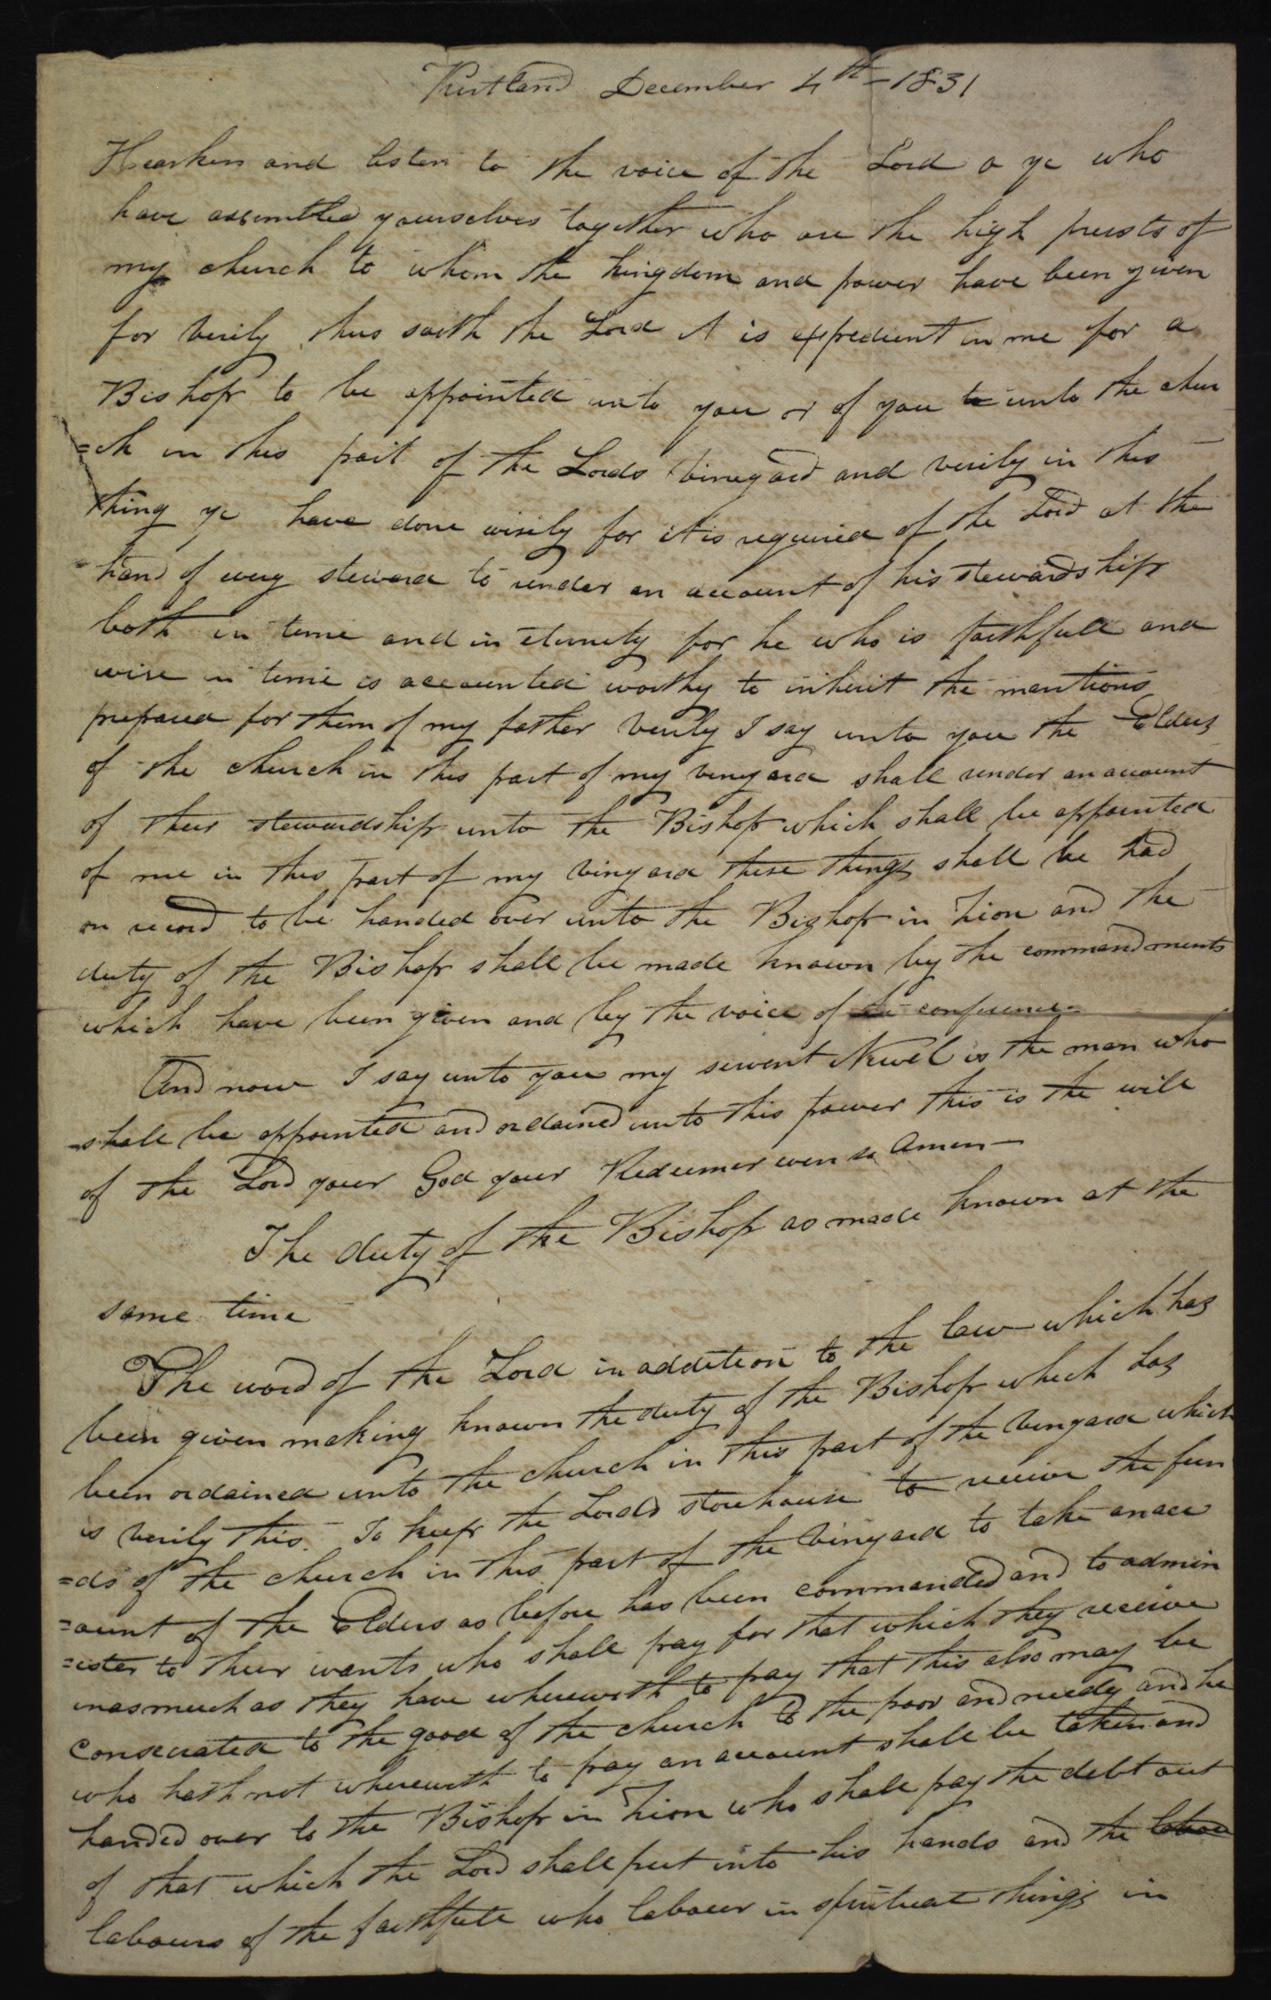 Kirtland December 4th - 1831
Hearken and listen to the voice of the Lord o ye who
have assembled yourselves together who are the high priests of
my church to whom the kingdom and power have been given
for verily thus saith the Lord it is expedient in me for a
Bishop to be appointed unto you or of you to unto the chur
=ch in this part of the Lords vineyard and verily in this
thing ye have done wisely for it is required of the Lord at the
hand of every steward to render an account of his stewardship
both in time and in eternity for he who is faithfull and
wise in time is accounted worthy to inherit the mantions
prepared for them of my father verily I say unto you the Elders
of the church in this part of my vinyard shall render an account
of their stewardship unto the Bishop which shall be appointed
of me in this part of my vinyard these things shall be had
on record to be handed over unto the Bishop in Zion and the
duty of the Bishop shall be made known by the commandments
which have been given and by the voice of the conference
And now I say unto you my servent Newel is the man who
shall be appointed and ordained unto this power this is the will
of the Lord your God your Redeemer even so Amen—
The duty of the Bishop as made known at the
same time
The word of the Lord in addition to the law which has
been given making known the duty of the Bishop which has
been ordained unto the church in this part of the vinyard which
is verily this. To keep the Lords storehouse to receive the fun
=ds of the church in this part of the vinyard to take an acc
=ount of the Elders as before has been commanded and to admin
=ister to their wants who shall pay for that which they receive
inasmuch as they have wherewith to pay that this also may be
consecrated to the good of the church to the poor and needy and he
who hath not wherewith to pay an account shall be taken and
handed over to the Bishop in Zion who shall pay the debt out
of that which the Lord shall put into his hands and the labou
labours of the faithfull who labour in spiritual things in